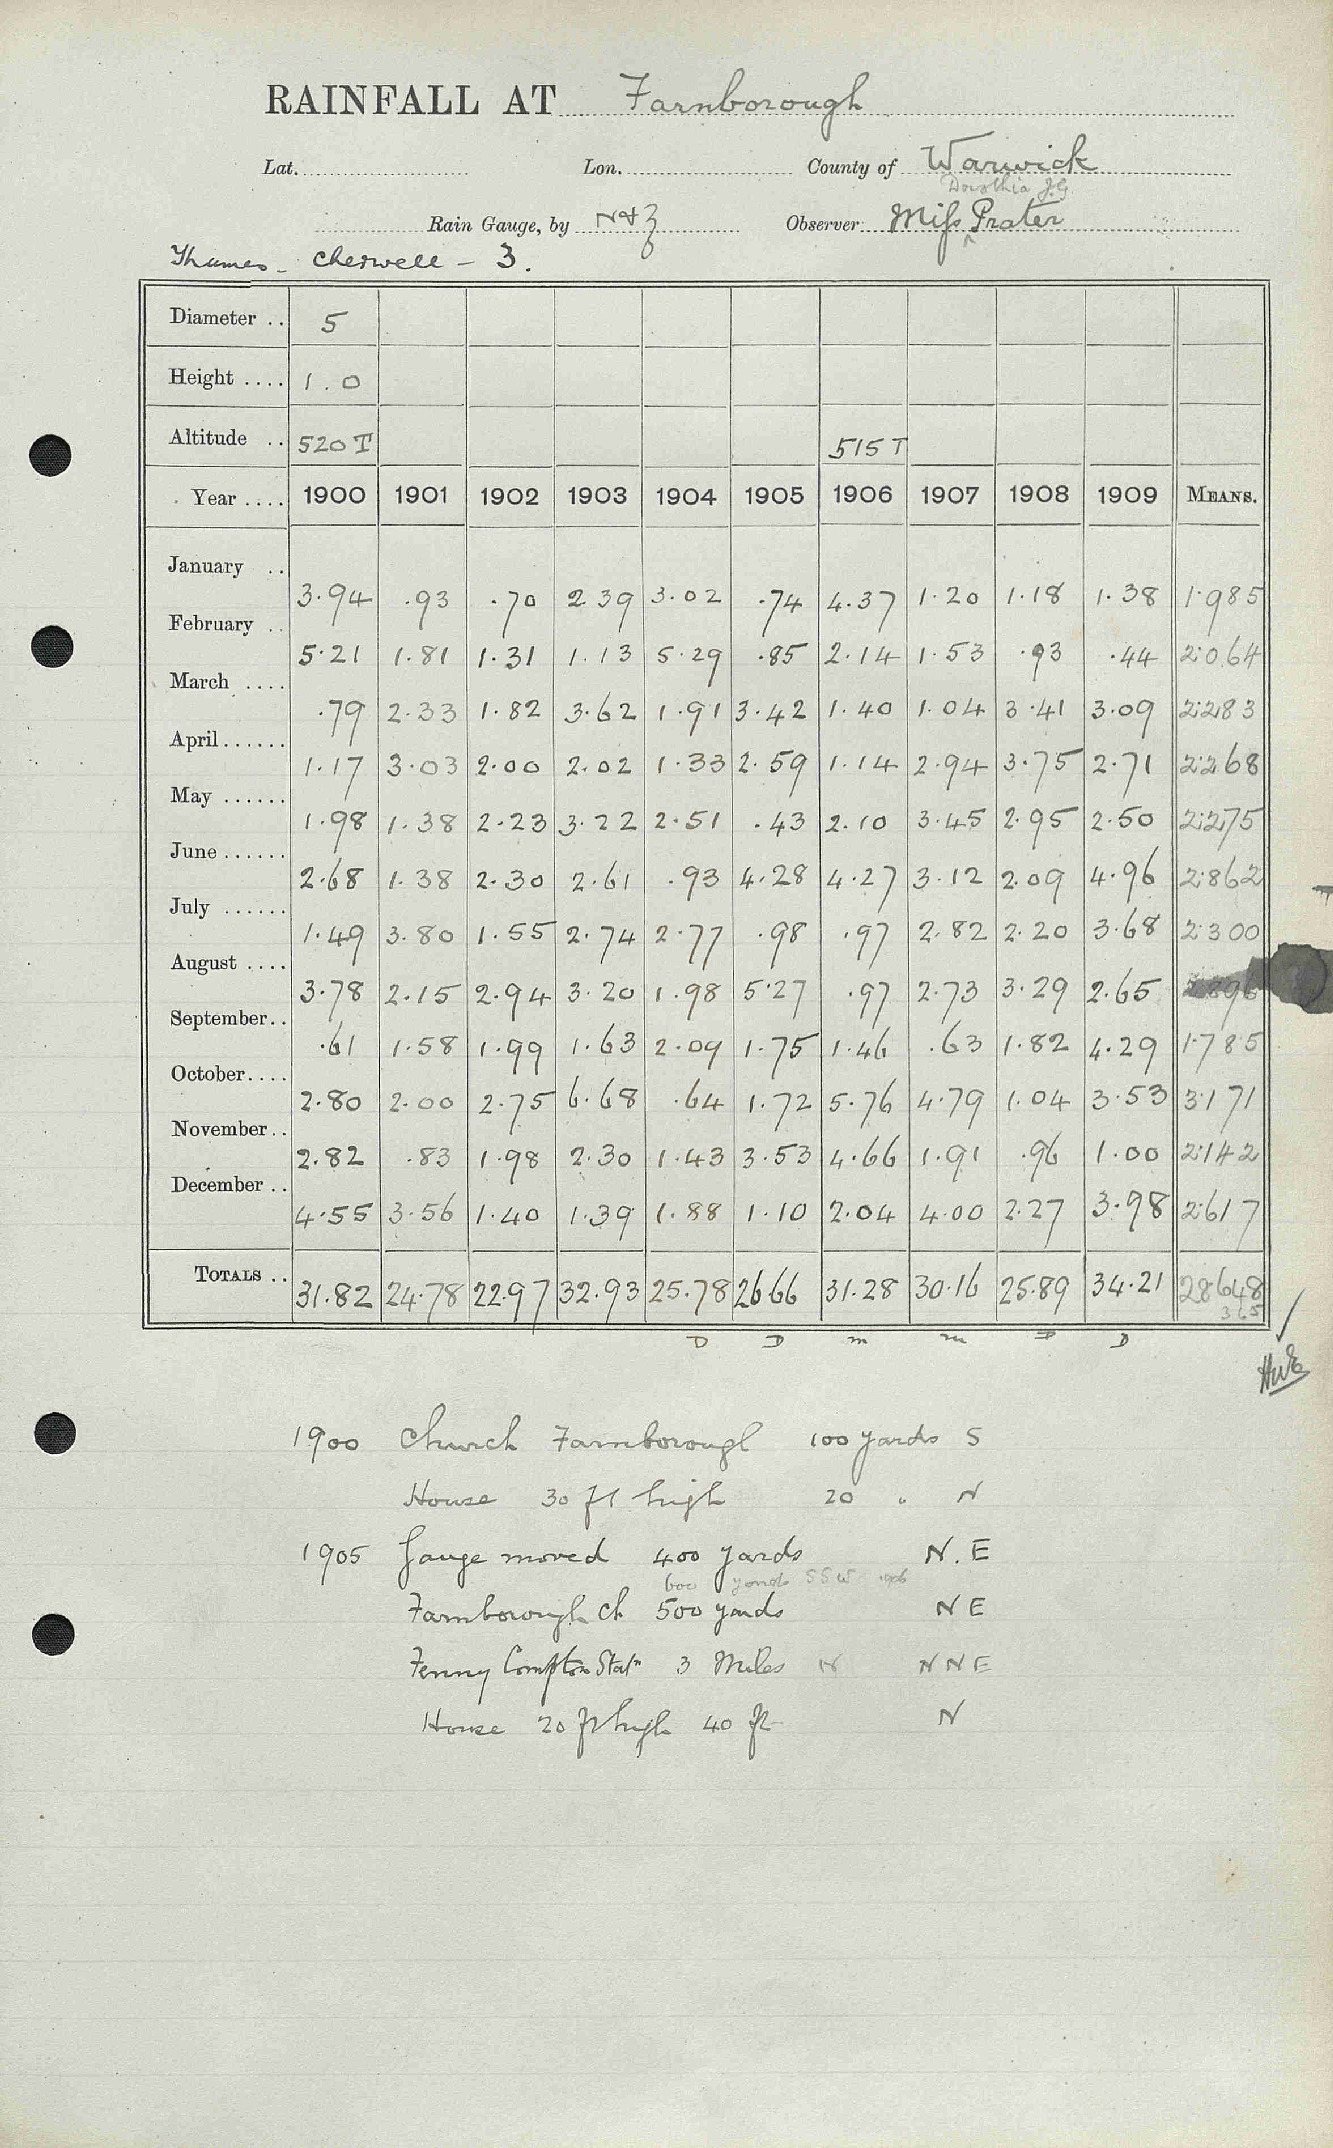 RAINFALL AT Farnborough
Lat. Lon. County of Warwick
Dorothia J.G
Rain Gauge, by N&Z Observer Miss ^ Prater
Thames - Cherwell - 3.
Diameter .. 5
Height .... 1.0
Altitude .. 520 T 515 T
Year .... 1900 1901 1902 1903 1904 1905 1906 1907 1908 1909 MEANS.
January .. 3.94 .93 .70 2.39 3.02 .74 4.37 1.20 1.18 1.38 1.985
February .. 5.21 1.81 1.31 1.13 5.29 .85 2.14 1.53 .93 .44 2.064
March .... .79 2.33 1.82 3.62 1.91 3.42 1.40 1.04 3.41 3.09 2.283
April...... 1.17 3.03 2.00 2.02 1.33 2.59 1.14 2.94 3.75 2.71 2.268
May ...... 1.98 1.38 2.23 3.22 2.51 .43 2.10 3.45 2.95 2.50 2.275
June ...... 2.68 1.38 2.30 2.61 .93 4.28 4.27 3.12 2.09 4.96 2.862
July ...... 1.49 3.80 1.55 2.74 2.77 .98 .97 2.82 2.20 3.68 2.300
August .... 3.78 2.15 2.94 3.20 1.98 5.27 .97 2.73 3.29 2.65 2.896
September.. .61 1.58 1.99 1.63 2.09 1.75 1.46 .63 1.82 4.29 1.785
October.... 2.80 2.00 2.75 6.68 .64 1.72 5.76 4.79 1.04 3.53 3.171
November.. 2.82 .83 1.98 2.30 1.43 3.53 4.66 1.91 .96 1.00 2.142
December .. 4.55 3.56 1.40 1.39 1.88 1.10 2.04 4.00 2.27 3.98 2.617
TOTALS .. 31.82 24.78 22.97 32.93 25.78 26.66 31.28 30.16 25.89 34.21 28.648
365
D D m m D D
HWE
1900 Church Farnborough 100 yards S
House 30 ft high 20 " N
1905 Gauge moved 400 yards N.E
600 yards SSW 1906
Farnborough ch 500 yards NE
Fenny Compton Statn 3 Miles N NNE
House 20 ft high 40 ft N